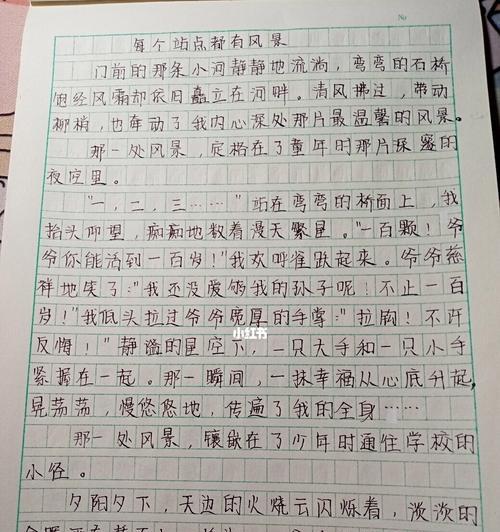 No
每个站点都有风景
门前的那条小河静静地流淌，弯弯的石桥
饱经风霜却依旧矗立在河畔。清风拂过，带动
柳梢，也牵动了我内心深处那片最温馨的风景。
那一处风景，定格在了童年时那片深邃的
夜空里。
"一，二，三……"站在弯弯的桥面上，我
抬头仰望，痴痴地数着漫天繁星。"一百颗！爷
爷你能活到一百岁！"我欢呼雀跃起来。爷爷慈
祥地笑了："我还没爱够我的孙子呢！不止一百
岁！"我低头拉过爷爷宽厚的手掌："拉钩！不许
反悔！"静谧的星空下，一只大手和一只小手
紧握在一起。那一瞬间，一抹幸福从心底升起，
晃荡荡，慢悠悠地，传遍了我的全身……
那一处风景，镶嵌在了少年时通往学校的
小径。
夕阳夕下，天边的火烧云闪烁着，淡淡的
小红书